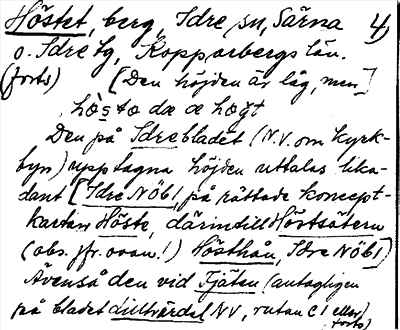 Höstet, berg, Idre sn, Särna 4)
o. Idre tg, Kopparbergs län.
(forts) [Den höjden är låg, men]
hœsto dœ œ hœgt
Den på Idrebladet (N.V. om kyrk-
byn) upptagna höjden uttalas lika-
dant [Idre NÖ b1, på rättade koncept-
kartan Höste, därintill Höstsätern
(obs. jfr. ovan!) Hösthån, Idre NÖ b1]
Ävenså den vid Fjäten (antagligen
på bladet Lillhärdal NV, rutan C1 eller
forts)